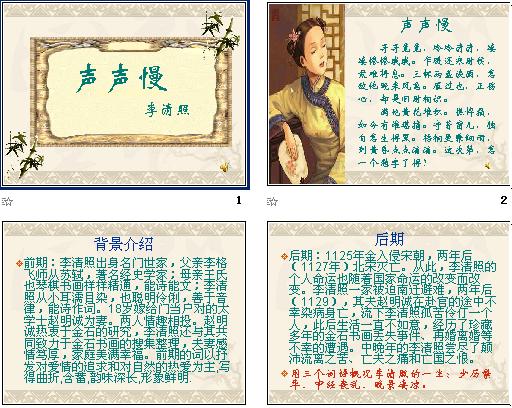 声声慢
李清照
1
声声慢
寻寻觅觅，冷冷清清，凄
凄惨惨戚戚。乍暖还寒时候，
最难将息。三杯两盏淡酒，怎
敌他晚来风急。雁过也，正伤
心，却是旧时相识。
满地黄花堆积。憔悴损，
如今有谁堪摘。守着窗儿，独
自怎生得黑。梧桐更兼细雨，
到黄昏点点滴滴。这次第，怎
一个愁字了得？
2
背景介绍
前期：李清照出身名门世家，父亲李格
飞师从苏轼，著名经史学家；母亲王氏
也琴棋书画样样精通，能诗能文；李清
照从小耳濡目染，也聪明伶俐，善于音
律，能诗作词。18岁嫁给门当户对的太
学士赵明诚为妻。两人情趣相投。赵明
诚热衷于金石的研究，李清照还与其共
同致力于金石书画的搜集整理，夫妻感
情笃厚，家庭美满幸福。前期的词以抒
发对爱情的追求和对自然的热爱为主,写
得曲折,含蓄,韵味深长,形象鲜明.
后期
后期：1125年金入侵宋朝，两年后
（1127年）北宋灭亡。从此，李清照的
个人命运也随着国家命运的改变而改
变。李清照一家被迫南迁避难，两年后
（1129），其夫赵明诚在赴官的途中不
幸染病身亡，流下李清照孤苦伶仃一个
人，此后生活一直不如意，经历了珍藏
多年的金石书画丢失事件、再婚离婚等
不幸的遭遇。中晚年的李清照尝尽了颠
沛流离之苦、亡夫之痛和亡国之恨。
用三个词语概况李清照的一生：少历繁
华、中经丧乱、晚景凄凉。